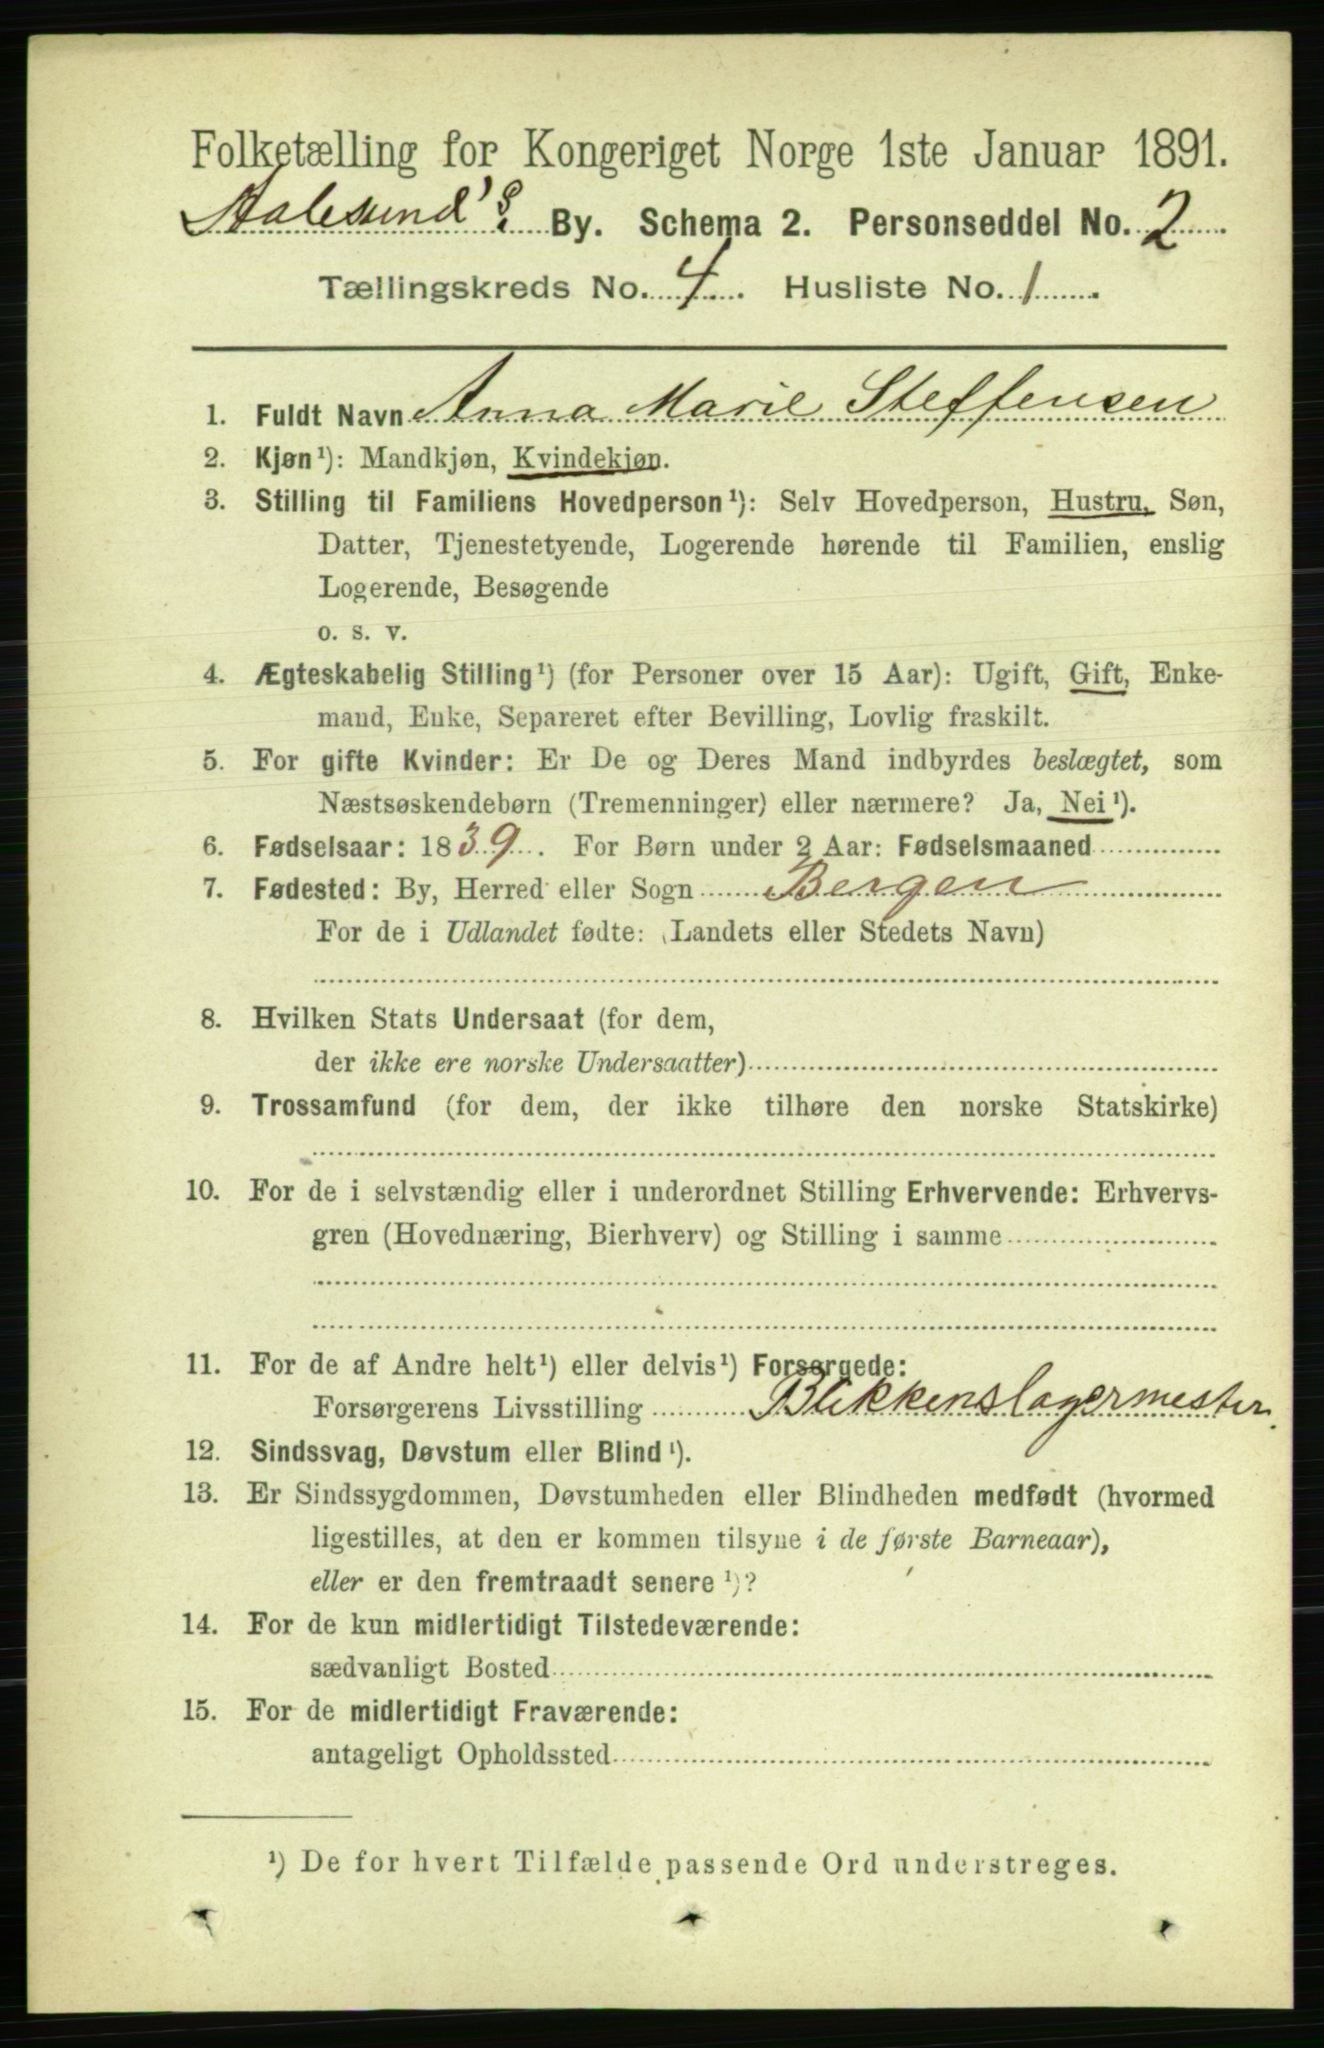 Folketælling for Kongeriget Norge 1ste Januar 1891.
Aalesund's By. Schema 2. Personseddel No. 2
Tællingskreds No. 4. Husliste No. 1.
1. Fuldt Navn Anna Marie Steffensen
2. Kjøn¹): Mandkjøn, Kvindekjøn.
3. Stilling til Familiens Hovedperson¹): Selv Hovedperson, Hustru, Søn,
Datter, Tjenestetyende, Logerende hørende til Familien, enslig
Logerende, Besøgende
o. s. v.
4. Ægteskabelig Stilling¹) (for Personer over 15 Aar): Ugift, Gift, Enke-
mand, Enke, Separeret efter Bevilling, Lovlig fraskilt.
5. For gifte Kvinder: Er De og Deres Mand indbyrdes beslægtet, som
Næstsøskendebørn (Tremenninger) eller nærmere? Ja, Nei¹).
6. Fødselsaar: 1839. For Børn under 2 Aar: Fødselsmaaned
7. Fødested: By, Herred eller Sogn Bergen
For de i Udlandet fødte: (Landets eller Stedets Navn)
8. Hvilken Stats Undersaat (for dem,
der ikke ere norske Undersaatter)
9. Trossamfund (for dem, der ikke tilhøre den norske Statskirke)
10. For de i selvstændig eller i underordnet Stilling Erhvervende: Erhvervs-
gren (Hovednæring, Bierhverv) og Stilling i samme
11. For de af Andre helt¹) eller delvis¹) Forsørgede:
Forsørgerens Livsstilling Blikkenslagermester.
12. Sindssvag, Døvstum eller Blind¹).
13. Er Sindssygdommen, Døvstumheden eller Blindheden medfødt (hvormed
ligestilles, at den er kommen tilsyne i de første Barneaar),
eller er den fremtraadt senere¹)?
14. For de kun midlertidigt Tilstedeværende:
sædvanligt Bosted
15. For de midlertidigt Fraværende:
antageligt Opholdssted
¹) De for hvert Tilfælde passende Ord understreges.